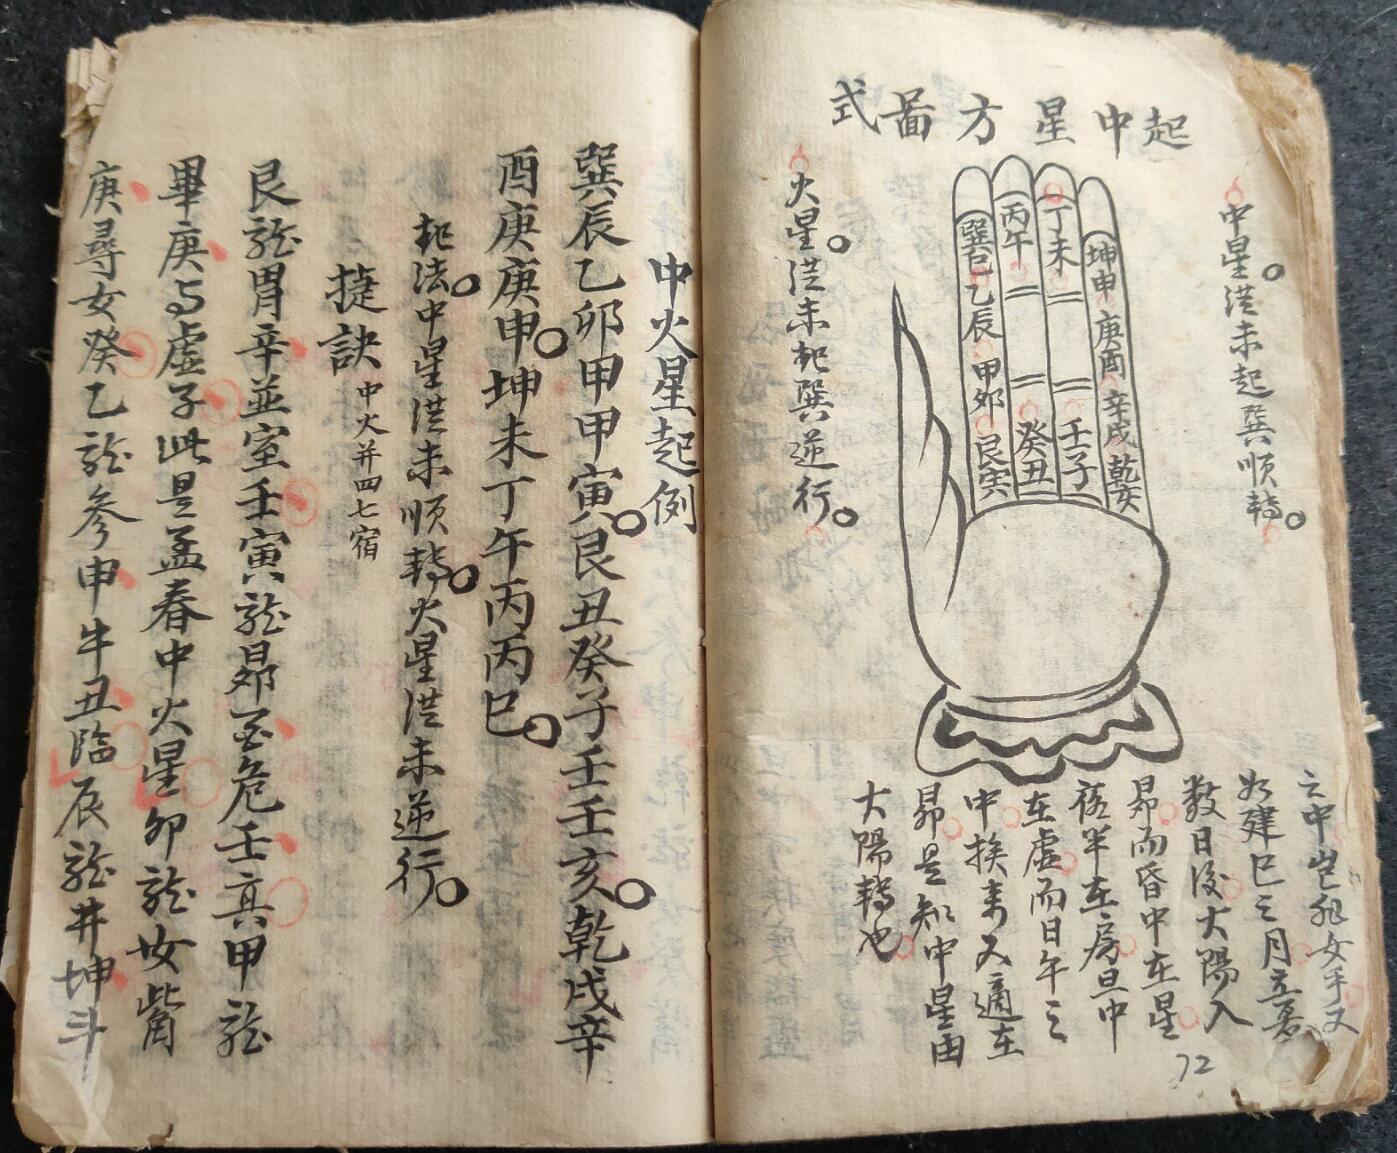 起中星方圖式
中星從未起巽順轉。
坤申庚酉辛戌乾亥
丁未
壬子
丙午
癸丑
巽巳乙辰甲卯艮寅
火星。從未起巽逆行。
之中豈非女乎又
如建巳之月立夏
数日後大陽入
昴而昏中在星
夜半在房旦中
在虛而日午之
中挨来又適在
昴是知中星由
大陽轉也
72
中火星起例
巽辰乙卯甲甲寅。艮丑癸子壬壬亥。乾戌辛
酉庚庚申。坤未丁午丙丙巳。
起法。中星從未順轉。火星從未逆行。
捷訣中火并四七宿
艮龍胃辛並室壬寅龍昴至危壬亥甲龍
畢庚与虛子此是孟春中火星卯龍女觜
庚尋女癸乙龍参申牛丑臨辰龍井坤斗